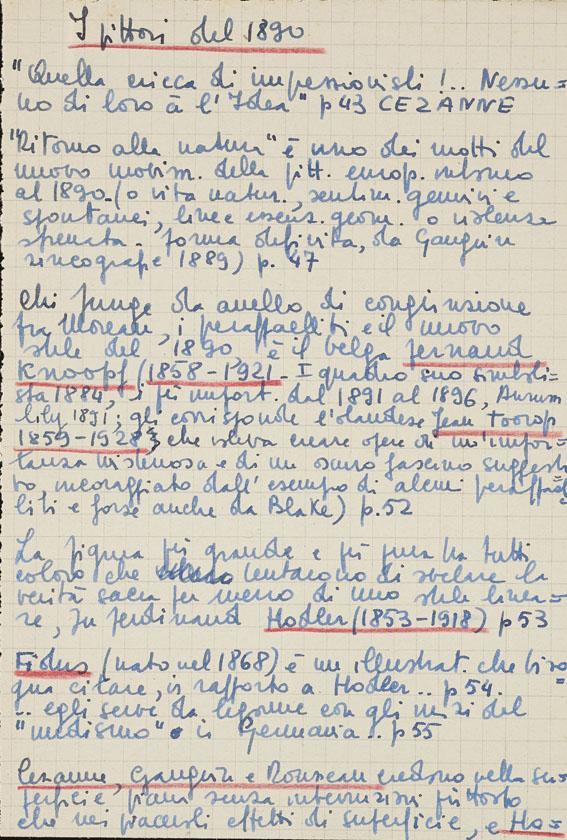 I pittori del 1890
"Quella cricca di impressionisti!.. Nessu=
no di loro à l'Idea" p 43 CEZANNE
"Ritorno alla natura" è uno dei motti del
nuovo movim. della pitt. europ. intorno
al 1890. (o vita natur., sentim. genuini e
spontanei, linee essenz. geom. o violenza
sfrenata. forma definita, da Gauguin
zincografie 1889) p. 47
Chi funge da anello di congiunzione
fra Moreau, i peraffaelliti e il nuovo
stile del 1890 è il belga Fernand
Knoopf (1858-1921. I quadro suo simboli=
sta 1884, i più import. dal 1891 al 1896, Aurum
lily 1891; gli corrisponde l'olandese Jean Toorop
1859-1928, che voleva creare opere di un'impor=
tanza misteriosa e di un oscuro fascino suggesti
vo incoraggiato dall'esempio di alcuni peraffael=
liti e forse anche da Blake) p. 52
La figura più grande e più pura fra tutti
coloro che tentarono di svelare la
verità sacra per mezzo di uno stile linea=
re, fu Ferdinand Hodler (1853-1918) p 53
Fidus (nato nel 1868) è un illustrat. che biso
gna citare, in rapporto a Hodler.. p 54.
.. egli serve da legame con gli inizi del
"nudismo" in Germania.. p 55
Cézanne, Gauguin e Rousseau credono nella su=
perficie piana senza interruzioni piuttosto
che nei piacevoli effetti di superficie, e Ho=